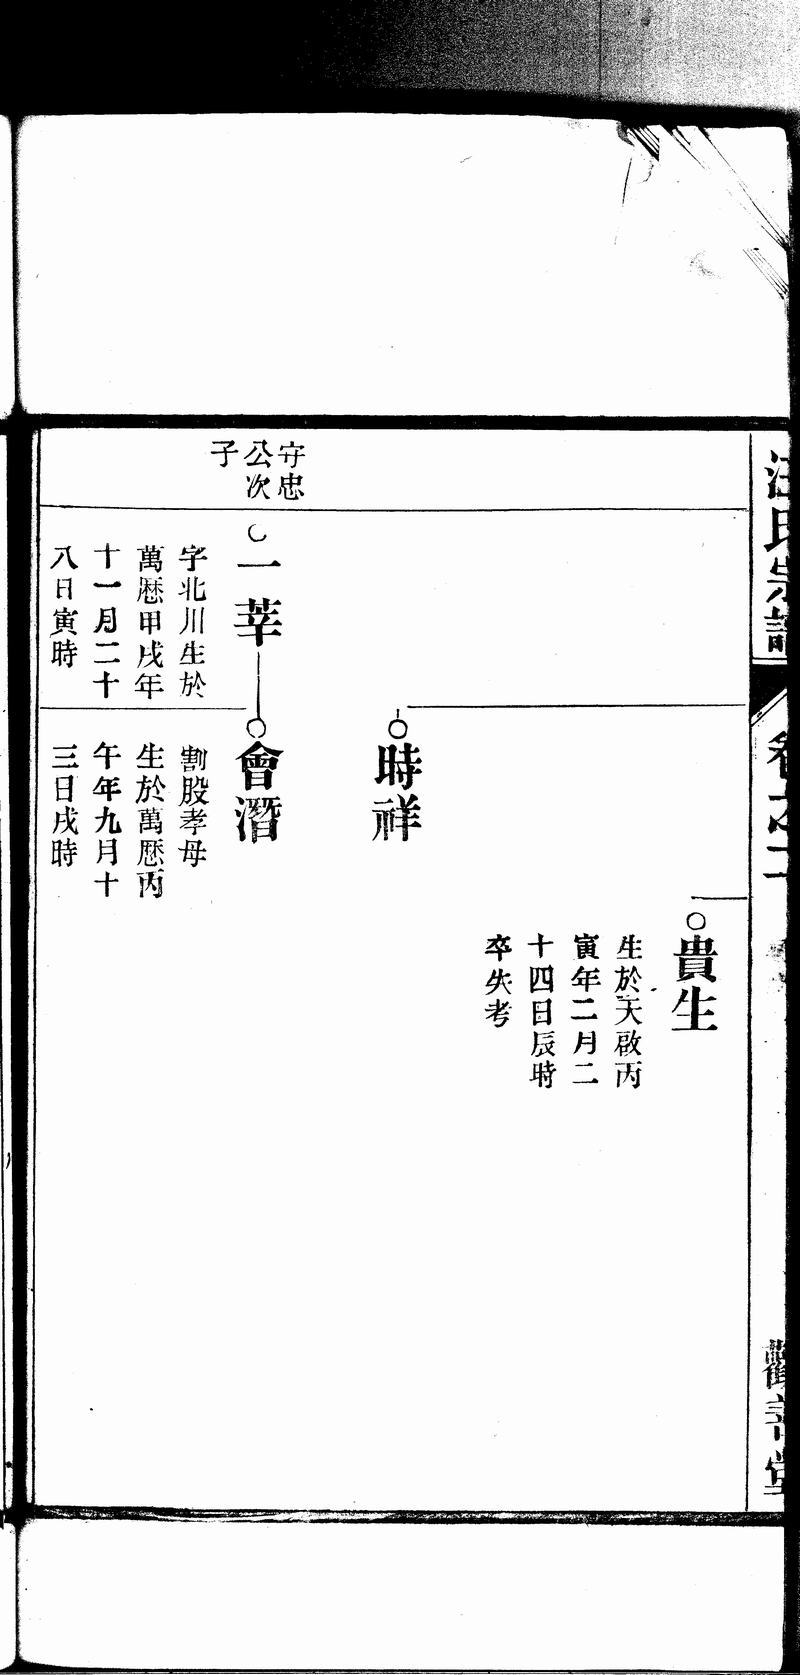 汪氏宗譜
卷之二
觀善堂
貴生
生於天啟丙
寅年二月二
十四日辰時
卒失考
時祥
守忠
公次
子
一莘
字北川生於
萬歷甲戌年
十一月二十
八日寅時
會潛
割股孝母
生於萬歷丙
午年九月十
三日戌時